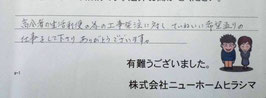 高令者の生活利便の為の工事発注に対し、ていねいに希望通りの
仕事をして下さり ありがとうございます。
有難うございました。
株式会社ニューホームヒラシマ